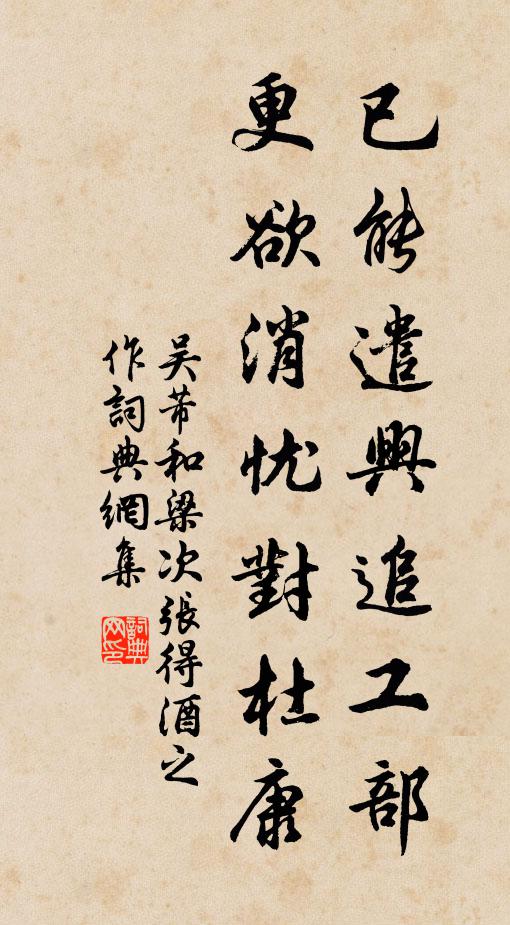 已能遣興追工部
更欲消忧對杜康
吴芾和梁次張得酒之
作詞典網集
詞典网印